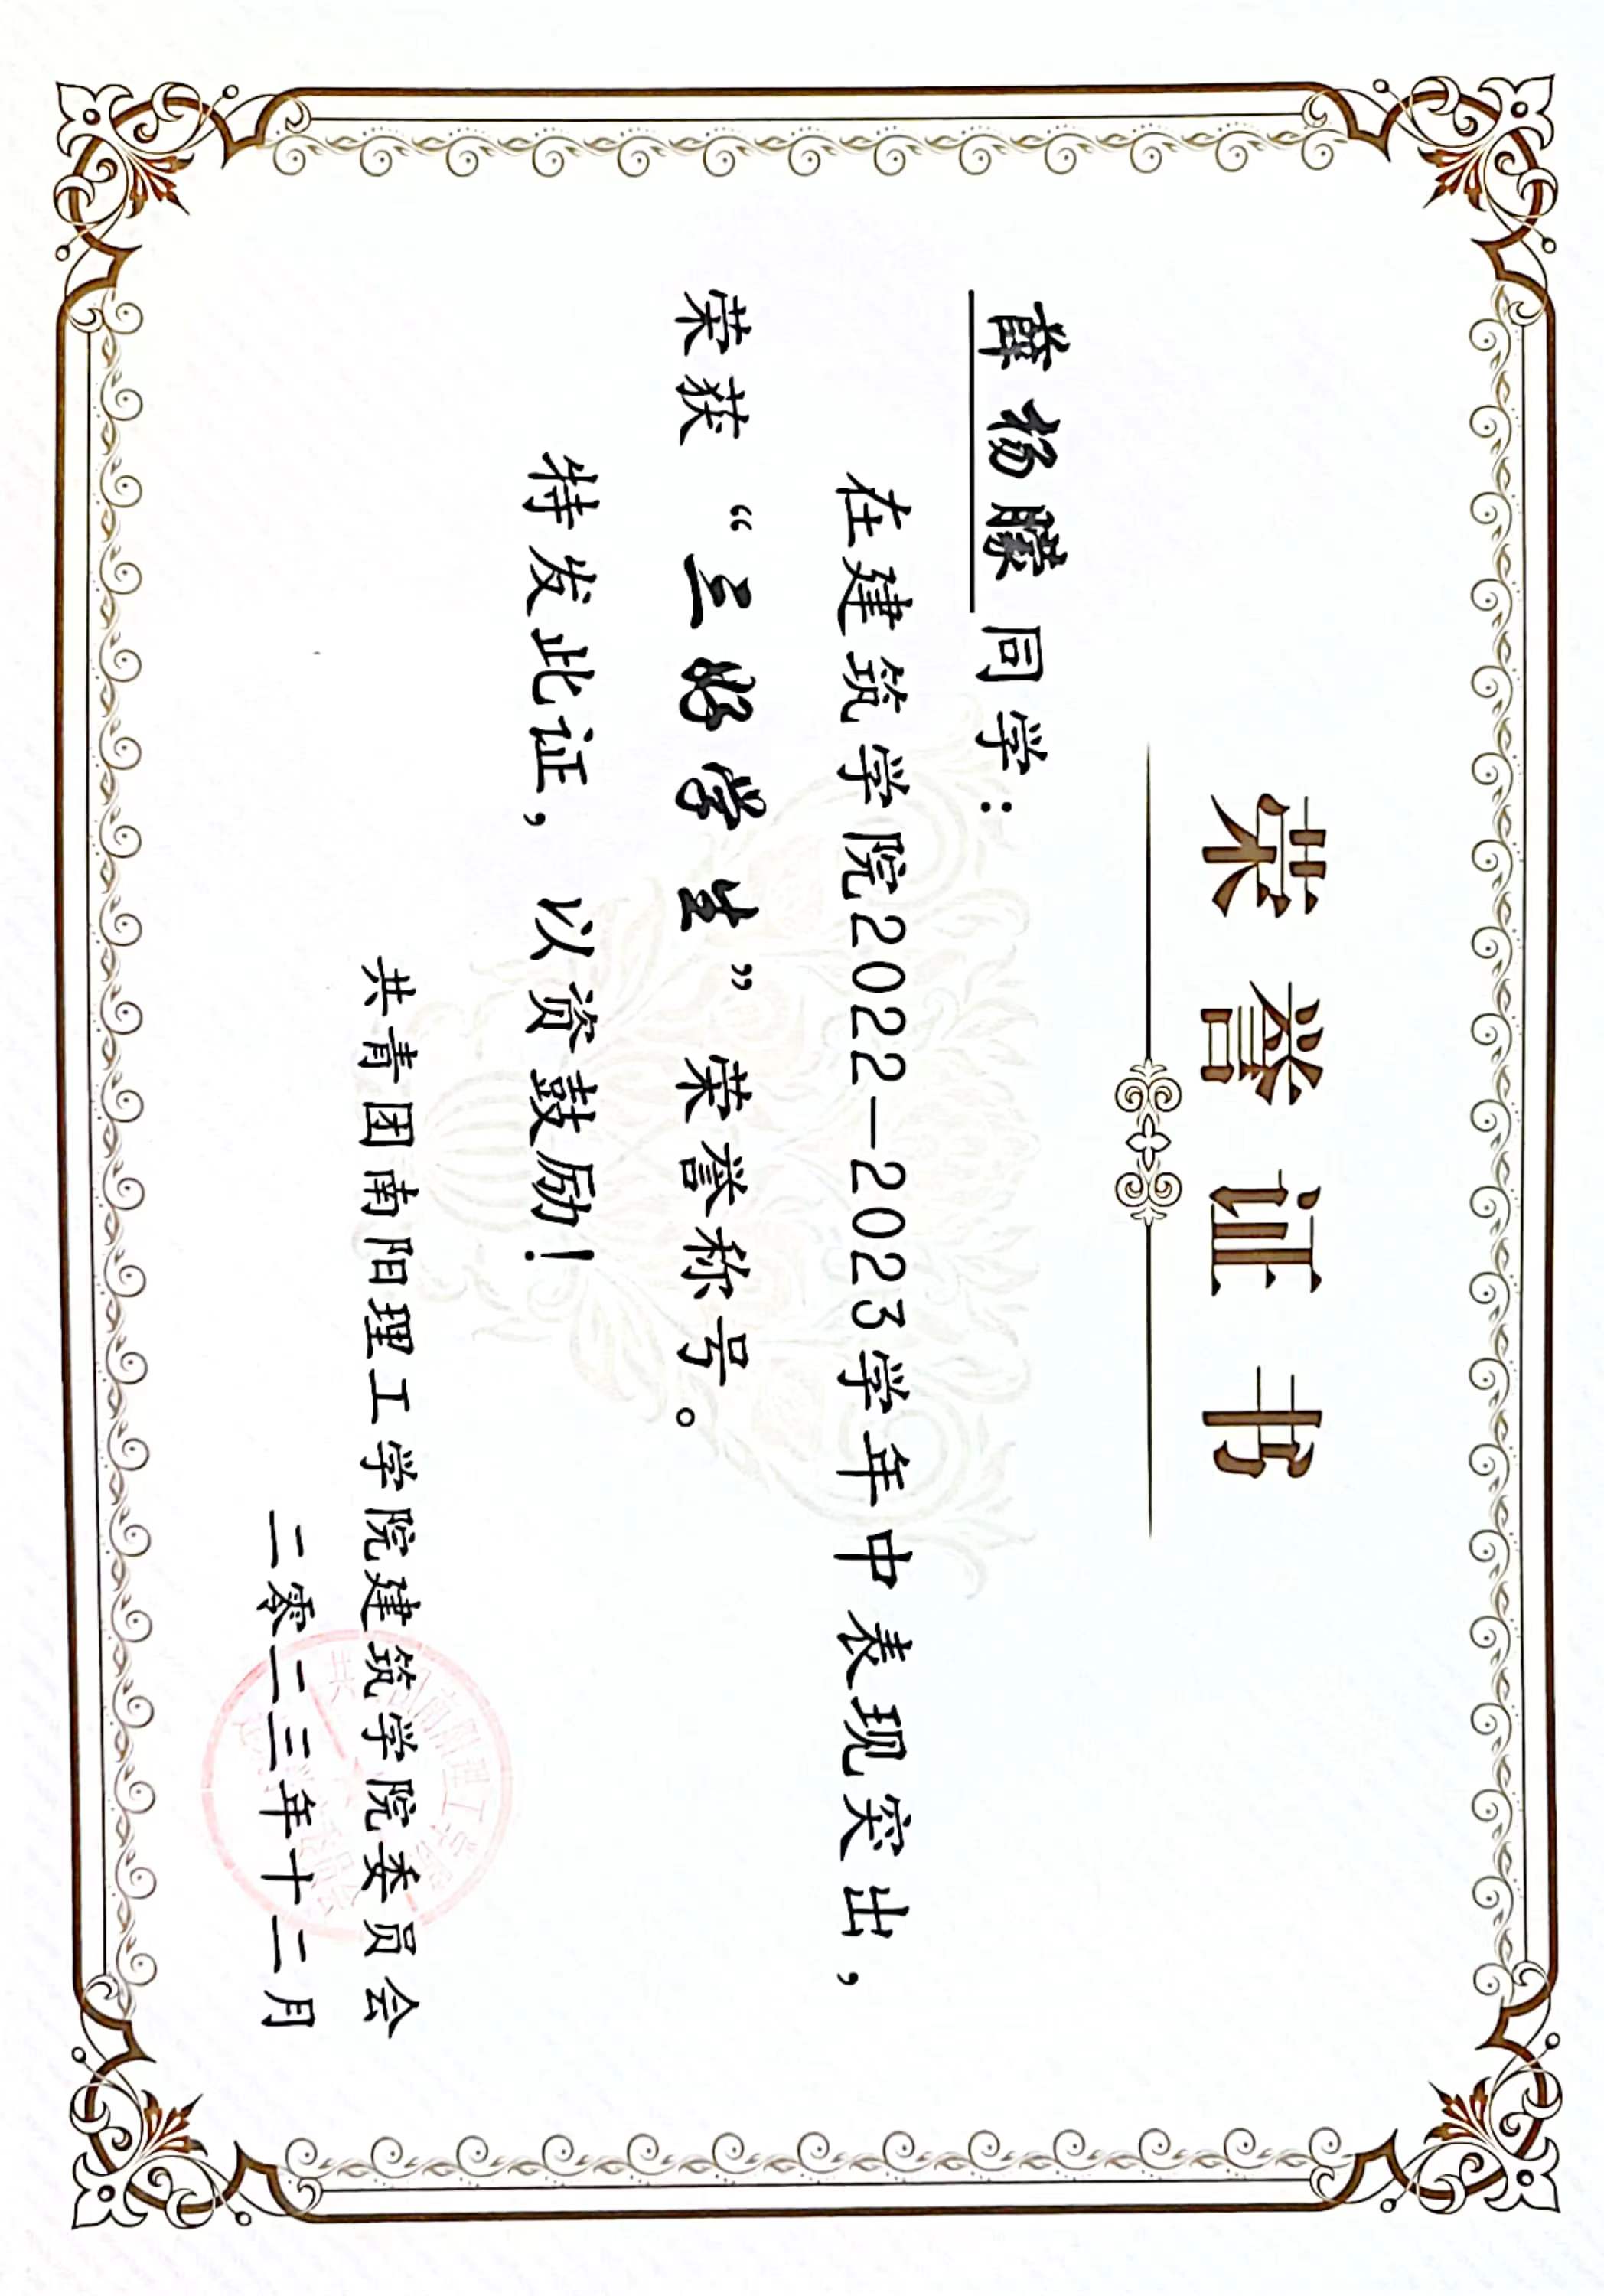 荣誉证书
薛杨朦同学：
在建筑学院2022—2023学年中表现突出，
荣获“三好学生”荣誉称号。
特发此证，以资鼓励！
共青团南阳理工学院建筑学院委员会
二零二三年十二月